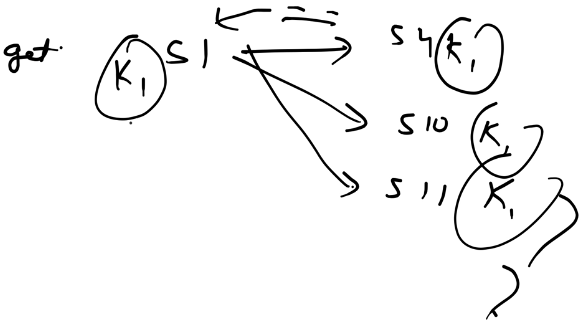 get K1 S1
S4 K1
S10 K1
S11 K1